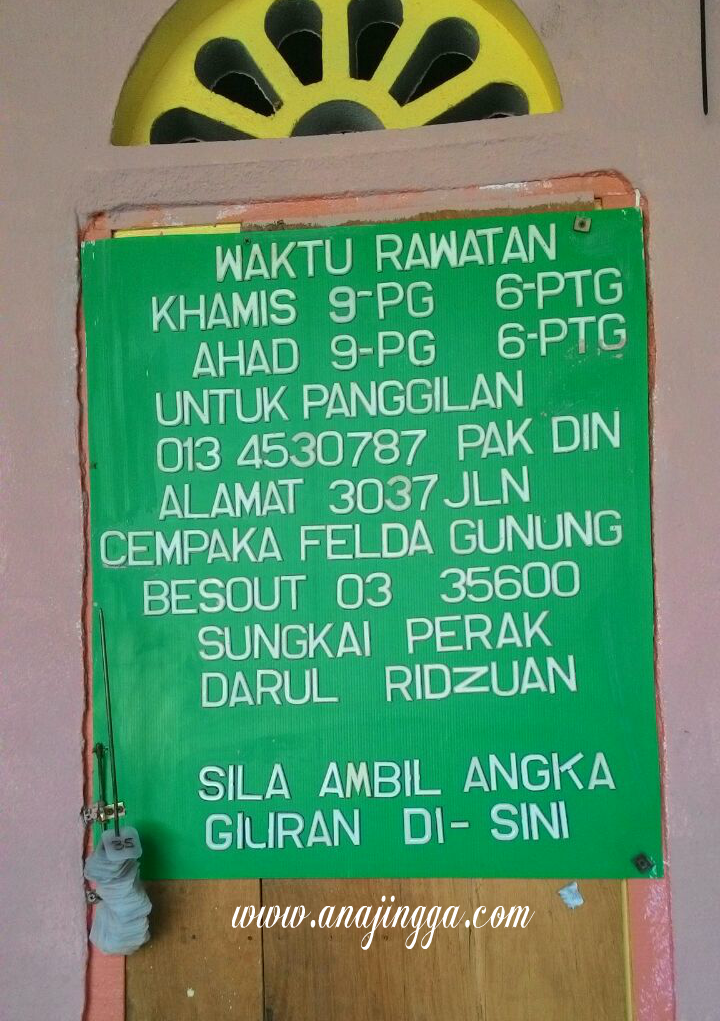 WAKTU RAWATAN
KHAMIS 9-PG 6-PTG
AHAD 9-PG 6-PTG
UNTUK PANGGILAN
013 4530787 PAK DIN
ALAMAT 3037 JLN
CEMPAKA FELDA GUNUNG
BESOUT 03 35600
SUNGKAI PERAK
DARUL RIDZUAN
SILA AMBIL ANGKA
GILIRAN DI-SINI
35
www.anajingga.com